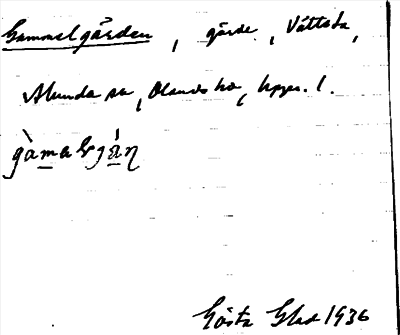 Gammalgården, gärde, Vättsta,
Almunda sn, Olands hd, Upps. l.
Gösta Glad 1936